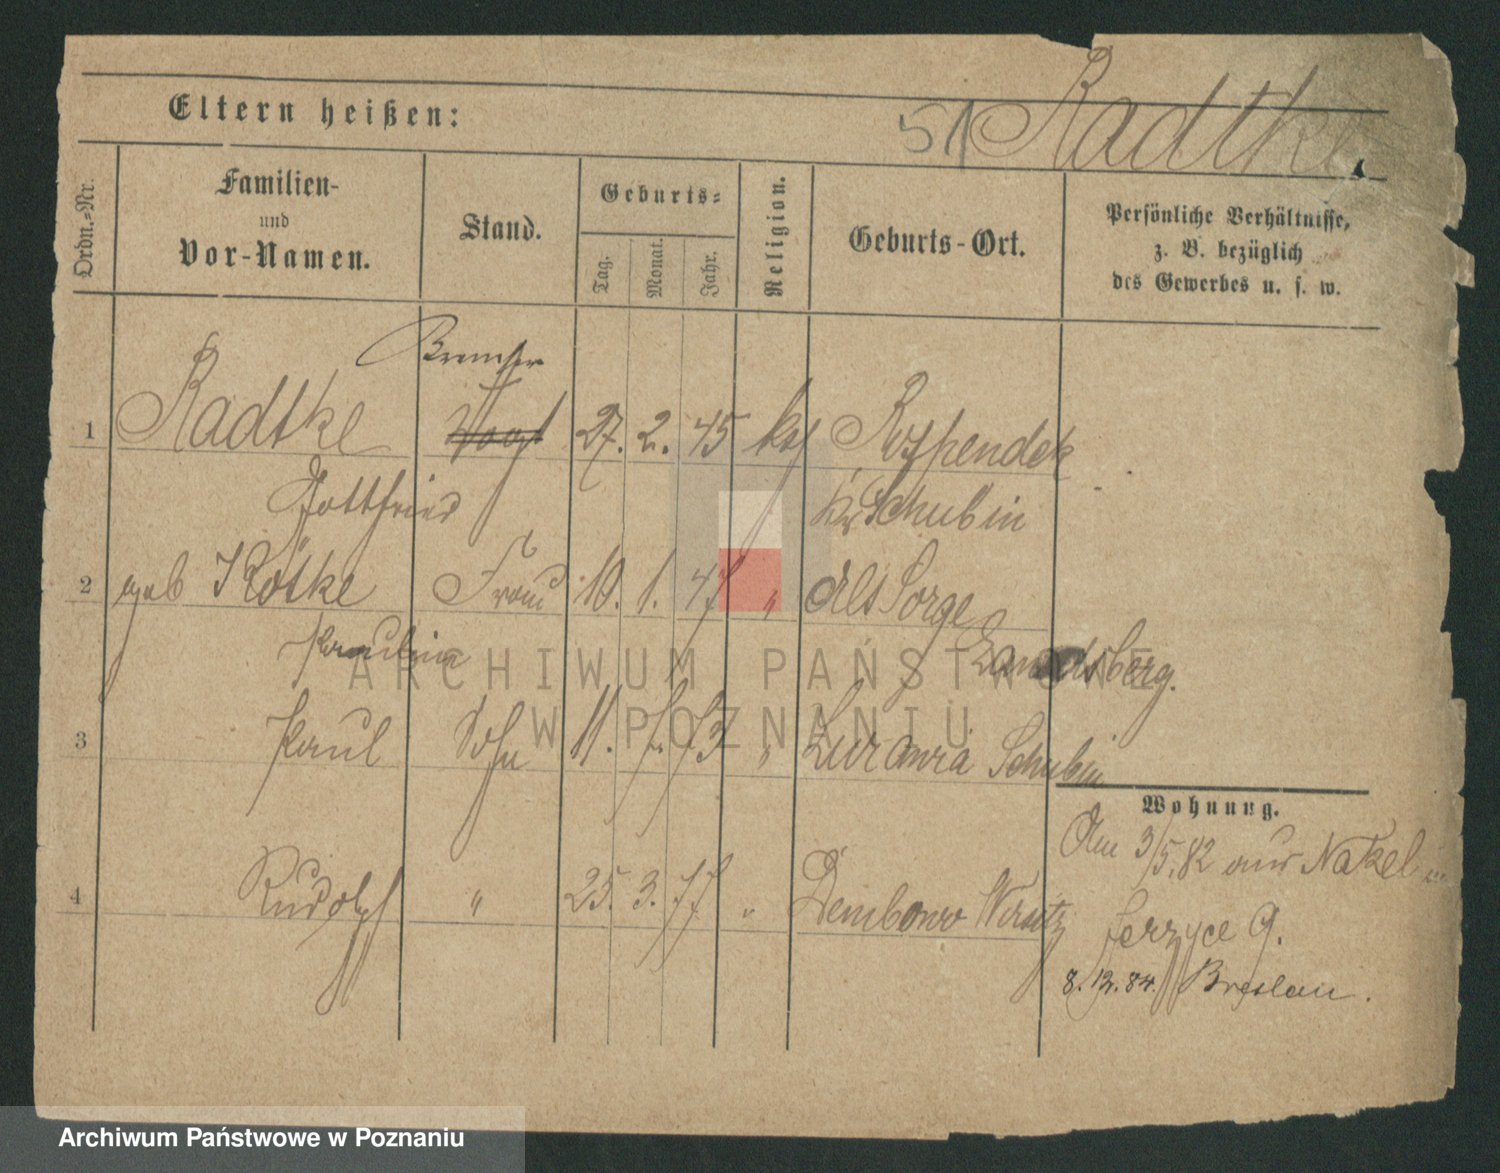 Eltern heißen:
51 Radtke
Ordn.-Nr.
Familien-
und
Vor-Namen.
Stand.
Geburts-
Tag.
Monat.
Jahr.
Religion.
Geburts-Ort.
Persönliche Verhältnisse,
z. B. bezüglich
des Gewerbes u. s. w.
Bremser
1 Radtke Vogt 27. 2. 45 Rospendek
Gottfried Kr Schubin
2 geb Frau 10. 1. 47 " Alt Sorge
Pauline Landsberg.
3 Paul Sohn 11. 7. 73 " Schubin
4 Rudolph " 25. 3. 77 " Dembowo Wirsitz
Wohnung.
Am 3/5.82 aus Nakel
Jerzyce 9.
8.12.84. Breslau.
ARCHIWUM PAŃSTWOWE
W POZNANIU
Archiwum Państwowe w Poznaniu